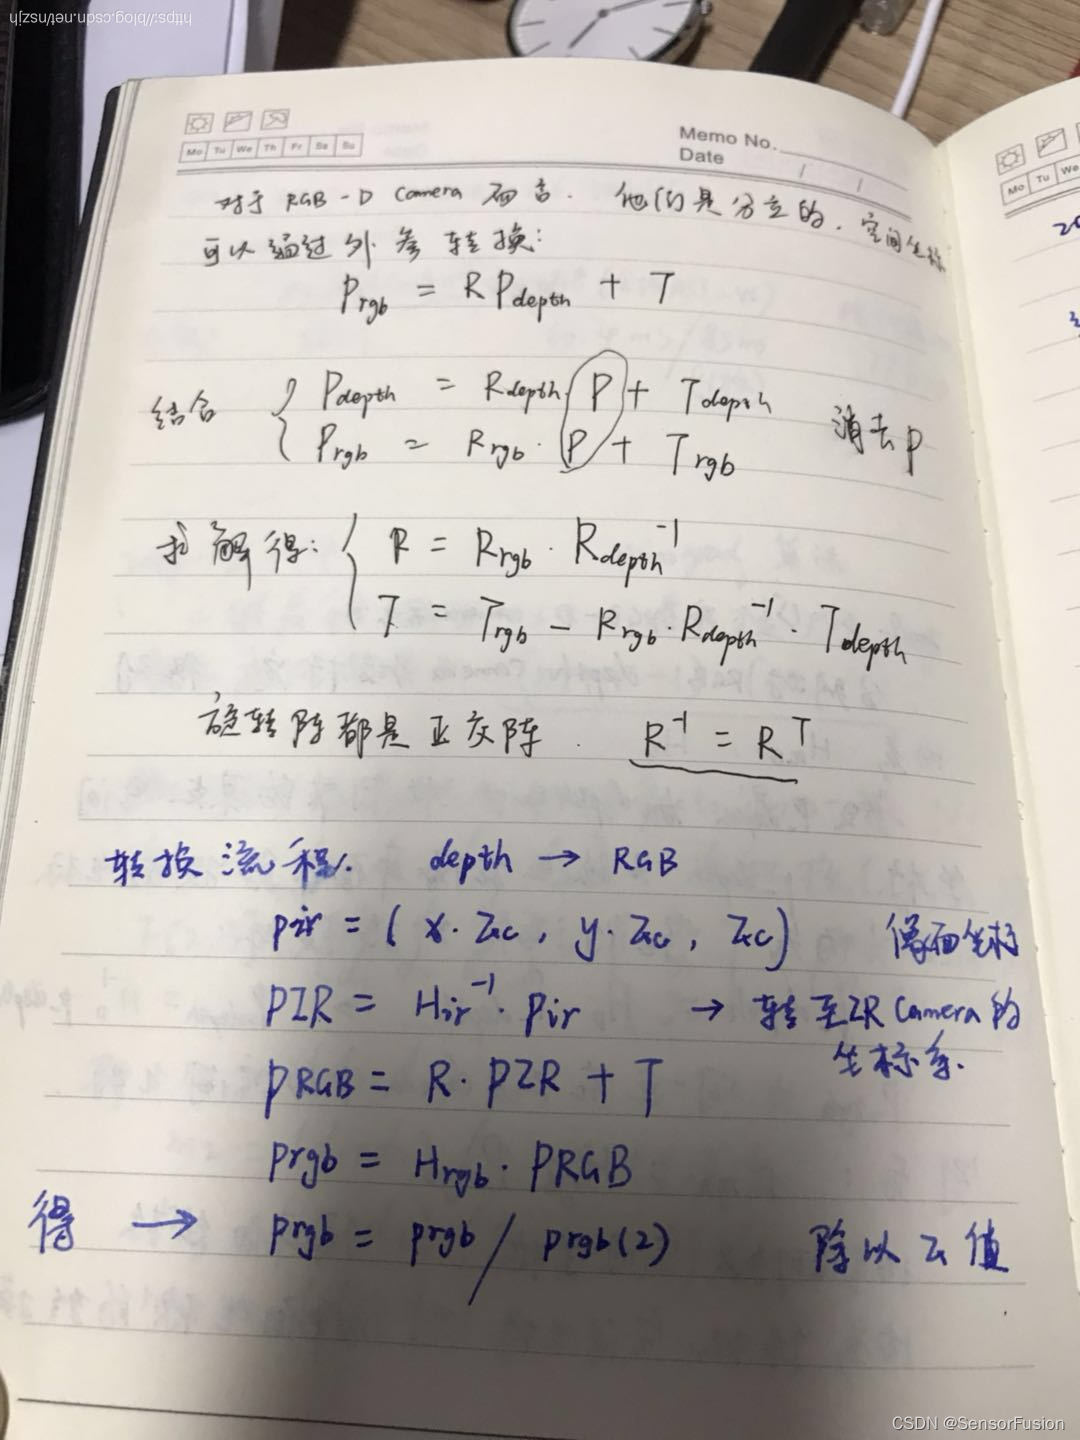 https://blog.csdn.net/unszjh
Memo No.
Date / /
Mo Tu We Th Fr Sa Su
Mo Tu We
对于 RGB-D Camera 而言. 他们是分立的, 空间坐标
可以通过外参转换:
Prgb = R Pdepth + T
结合 { Pdepth = Rdepth P + Tdepth
Prgb = Rrgb · P + Trgb 消去P
求解得: { R = Rrgb · Rdepth⁻¹
T = Trgb − Rrgb · Rdepth⁻¹ · Tdepth
旋转阵都是正交阵. R⁻¹ = Rᵀ
转换流程. depth → RGB
pir = ( x·Zc , y·Zc , Zc ) 像面坐标
PIR = Hir⁻¹ · pir → 转至IR Camera的
坐标系.
PRGB = R · PIR + T
prgb = Hrgb · PRGB
得 → prgb = prgb / prgb(2) 除以Z值
CSDN @SensorFusion